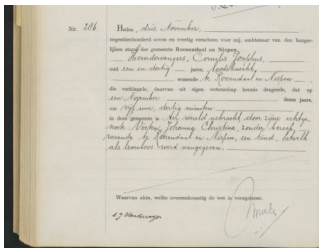 Nr. 286
Heden, drie November,
negentienhonderd zeven en veertig verscheen voor mij, ambtenaar van den burger-
lijken stand der gemeente Roosendaal en Nispen,
Cornelis Josephus,
oud een en dertig jaren,
wonende te Roosendaal en Nispen
die verklaarde, daarvan uit eigen wetenschap kennis dragende, dat op
een November dezes jaars,
om vijf uur, dertig minuten
in deze gemeente is ter wereld gebracht door zijne echtge-
noote Johanna Christina, zonder beroep,
wonende te Roosendaal en Nispen, een kind, hetwelk
als levenloos wordt aangegeven.
Waarvan akte, welke overeenkomstig de wet is voorgelezen.